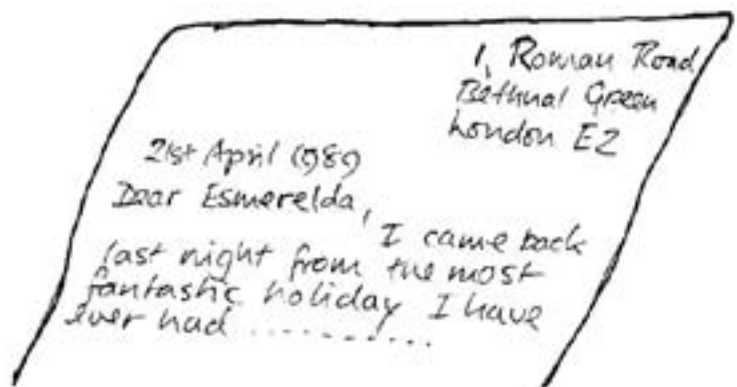 1, Roman Road
Bethnal Green
London E2
21st April 1989
Dear Esmerelda,
I came back
last night from the most
fantastic holiday I have
ever had ..........